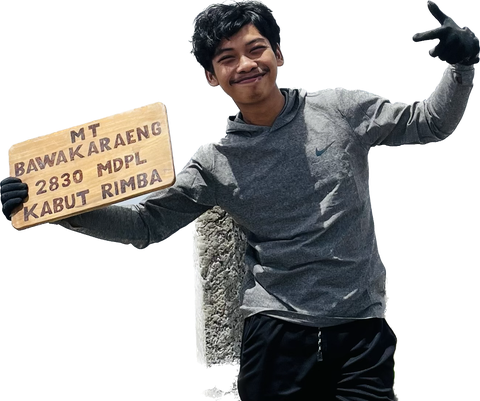 MT
BAWAKARAENG
2830 MDPL
KABUT RIMBA